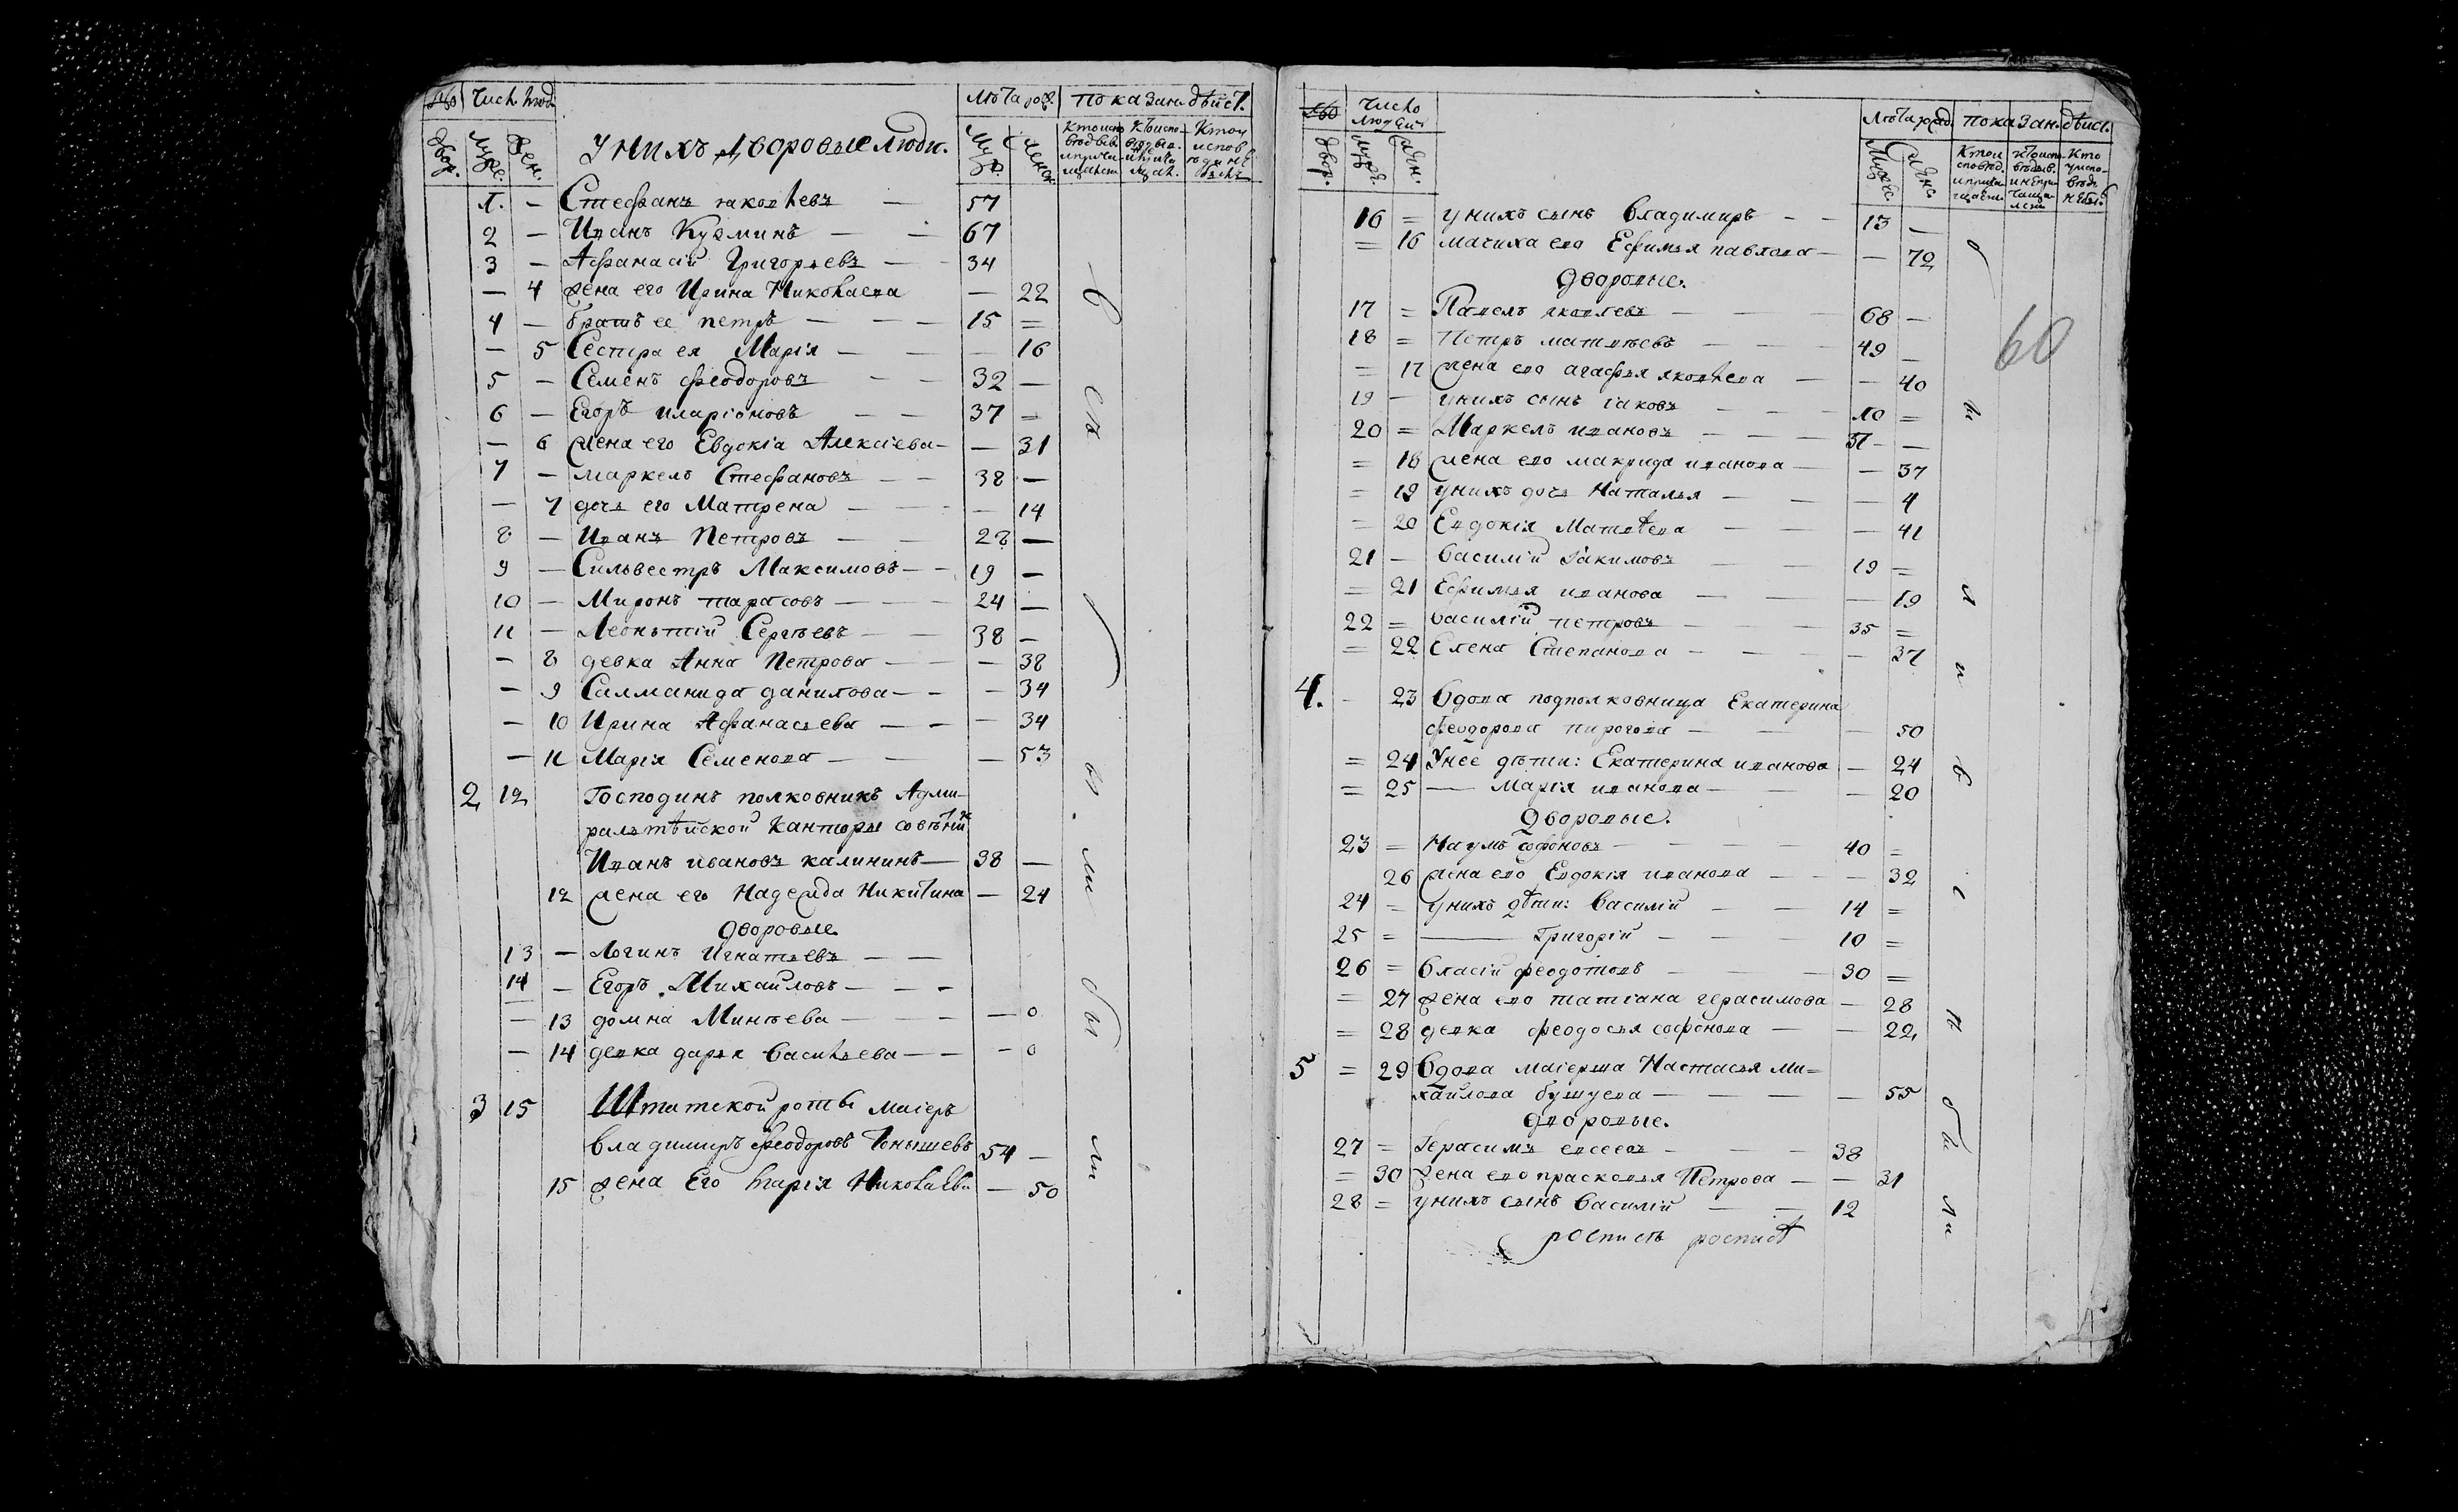 число люд. лѣта рож. показан. дѣйст.
двор. муже. жен. У нихъ дворовые люди. муж. женск.
1. — Стефанъ Яковлевъ — 57
2 — Иванъ Кузминъ — — 67
3 — Афанасій Григорьевъ — — 34
— 4 жена его Ирина Николаева — 22
4 — братъ ее петръ — — — 15 =
— 5 Сестра ея Марія — — — 16
5 — Семенъ феодоровъ — — 32 —
6 — Егоръ иларіоновъ — — 37 =
— 6 жена его Евдокіа Алексіева — — 31
7 — маркелъ Стефановъ — — 38 —
— 7 дочь его Матрена — — — 14
8 — Иванъ Петровъ — — 28 —
9 — Сильвестръ Максимовъ — — 19 —
10 — Миронъ тарасовъ — — — 24 —
11 — Леонътій Сергѣевъ — — 38 —
— 8 девка Анна Петрова — — — 38
— 9 Салманида данилова — — — 34
— 10 Ирина Афанасьева — — — 34
— 11 Марія Семенова — — — 53
2 12 Господинъ полковникъ Адми-
ралътѣйской Канторы совѣтникъ
Иванъ ивановъ калининъ — 38 —
12 жена его Надежда Никитина — 24
дворовые
13 — Логинъ Игнатьевъ — —
14 — Егоръ Михайловъ — — —
— 13 домна Минѣева — — — — 0
— 14 девка дарья Васильева — — — 0
3 15 Штатской роты маіеръ
владимиръ феодоровъ 54 —
15 жена Его марія Николаева — 50
б
ы
л
и
число людей лѣта рожд. показан. дѣйст.
двор. муже. жен. мужс. женс.
16 = у нихъ сынъ Владимиръ — — 13 —
= 16 мачиха его Ефимья павлова — — 72
дворовые.
60
17 = Павелъ яковлевъ — — — 68 —
18 = Петръ матвѣевъ — — — 49 —
= 17 жена его агафья яковлева — — 40
19 — у нихъ сынъ іаковъ — — — 10 =
20 = Маркелъ ивановъ — — — 37 — —
= 18 жена его макрида иванова — — 37
= 19 у нихъ дочь Наталья — — — 4
= 20 Евдокія Матвѣева — — — 41
21 — Василій Іакимовъ — — 19 =
= 21 Ефимья иванова — — — 19
22 = василій петровъ — — — 35 =
= 22 Елена Степанова — — — 37
4. - 23 Вдова подполковница Екатерина
феодорова пирогова — — — 50
= 24 У нее дѣти: Екатерина иванова — 24
= 25 —— Марія иванова — — — 20
дворовые.
23 = Наумъ софоновъ — — — 40 =
26 жена его Евдокія иванова — — — 32
24 = у нихъ дѣти: Василій — — 14 =
25 = —— Григорій — — — 10 =
26 = Власій феодотовъ — — — 30 =
= 27 жена его татіана герасимова — 28
= 28 девка феодосья софонова — — 22
5 = 29 Вдова маіерша Настасья Ми=
хайлова бушуева — — — — 55
дворовые.
27 = Герасимъ евсеевъ — — — 38
= 30 жена его прасковья Петрова — — 31
28 = у нихъ сынъ Василій — — 12